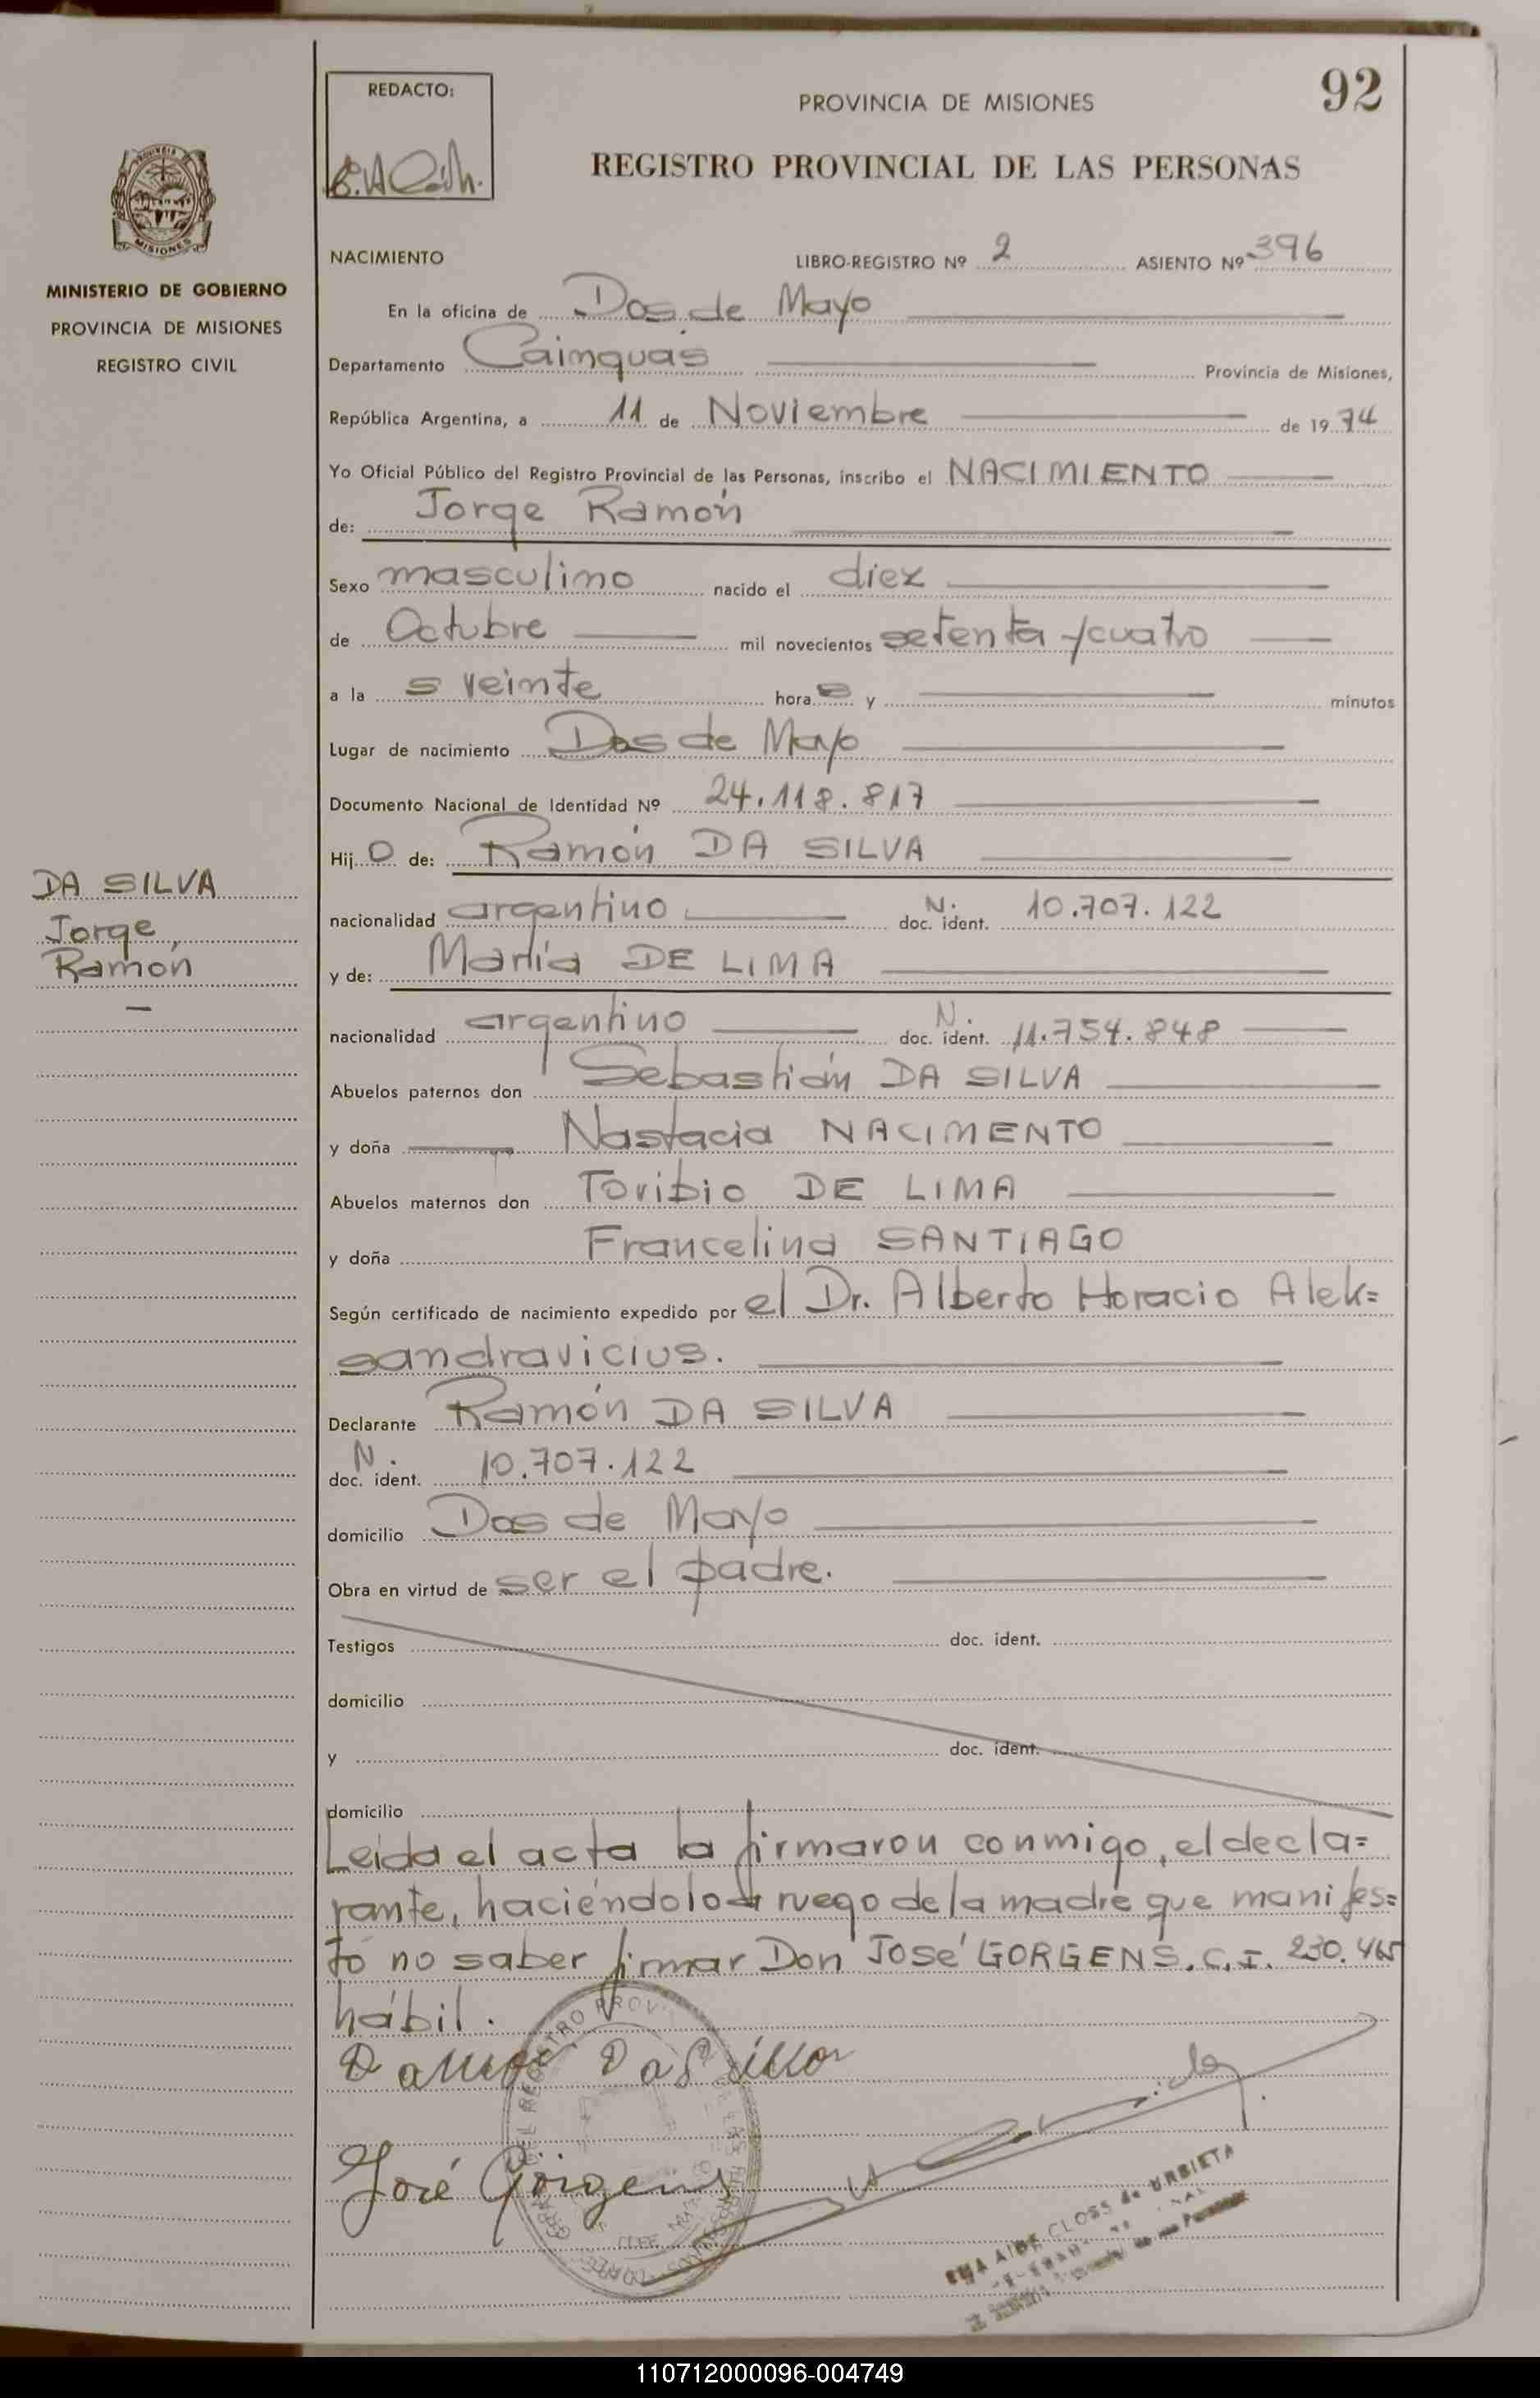 REDACTO:
PROVINCIA DE MISIONES
92
REGISTRO PROVINCIAL DE LAS PERSONAS
MISIONES
MINISTERIO DE GOBIERNO
PROVINCIA DE MISIONES
REGISTRO CIVIL
NACIMIENTO LIBRO-REGISTRO Nº 2 ASIENTO Nº 396
En la oficina de Dos de Mayo
Departamento Cainguás Provincia de Misiones,
República Argentina, a 11 de Noviembre de 1974
Yo Oficial Público del Registro Provincial de las Personas, inscribo el NACIMIENTO
de: Jorge Ramón
Sexo masculino nacido el diez
de Octubre mil novecientos setenta y cuatro
a la s veinte hora s y minutos
Lugar de nacimiento Dos de Mayo
Documento Nacional de Identidad Nº 24.118.817
Hijo de: Ramón DA SILVA
DA SILVA
Jorge
Ramón
nacionalidad argentino N. doc. ident. 10.707.122
y de: María DE LIMA
nacionalidad argentino N. doc. ident. 11.754.848
Abuelos paternos don Sebastián DA SILVA
y doña Nastacia NACIMENTO
Abuelos maternos don Toribio DE LIMA
y doña Francelina SANTIAGO
Según certificado de nacimiento expedido por el Dr. Alberto Horacio Alek=
sandravicius.
Declarante Ramón DA SILVA
N. doc. ident. 10.707.122
domicilio Dos de Mayo
Obra en virtud de ser el padre.
Testigos doc. ident.
domicilio
y doc. ident.
domicilio
Leída el acta la firmaron conmigo, el decla=
rante, haciéndolo a ruego de la madre que manifes=
tó no saber firmar Don José GORGENS. C.I. 230.465
hábil.
José Görgens
CLOSS de URBIETA
110712000096-004749